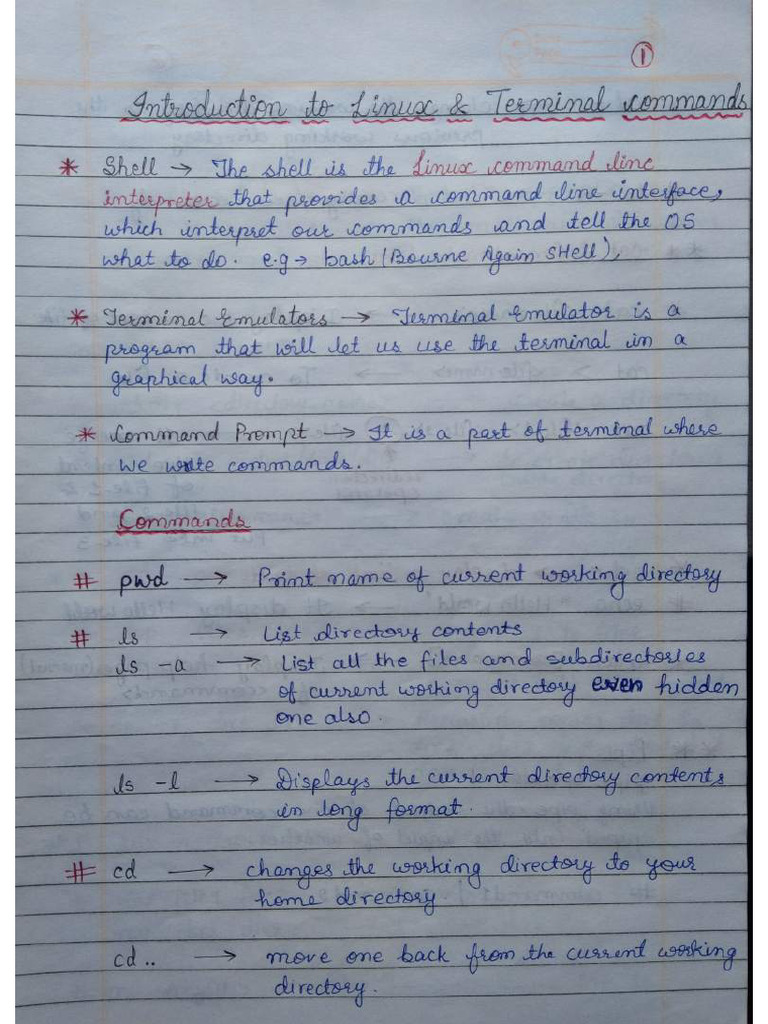 1
Introduction to Linux & Terminal commands
* Shell → The shell is the Linux command line
interpreter that provides a command line interface,
which interpret our commands and tell the OS
what to do. e.g → bash (Bourne Again SHell),
* Terminal Emulators → Terminal Emulator is a
program that will let us use the terminal in a
graphical way.
* Command Prompt → It is a part of terminal where
we write commands.
Commands
# pwd → Print name of current working directory
# ls → List directory contents
ls -a → List all the files and subdirectories
of current working directory even hidden
one also.
ls -l → Displays the current directory contents
in long format.
# cd → changes the working directory to your
home directory
cd .. → move one back from the current working
directory.